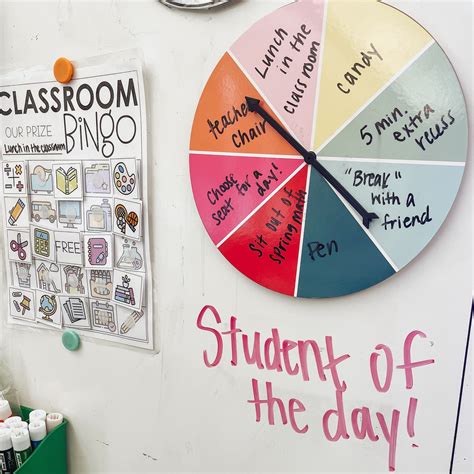 CLASSROOM
BiNGO
OUR PRIZE
Lunch in the classroom
FREE
Lunch
in the
classroom
candy
5 min.
extra
recess
"Break"
with a
friend
Pen
Sit out of
spring math
Choose
seat for a
day!
teacher
chair
Student of
the day!